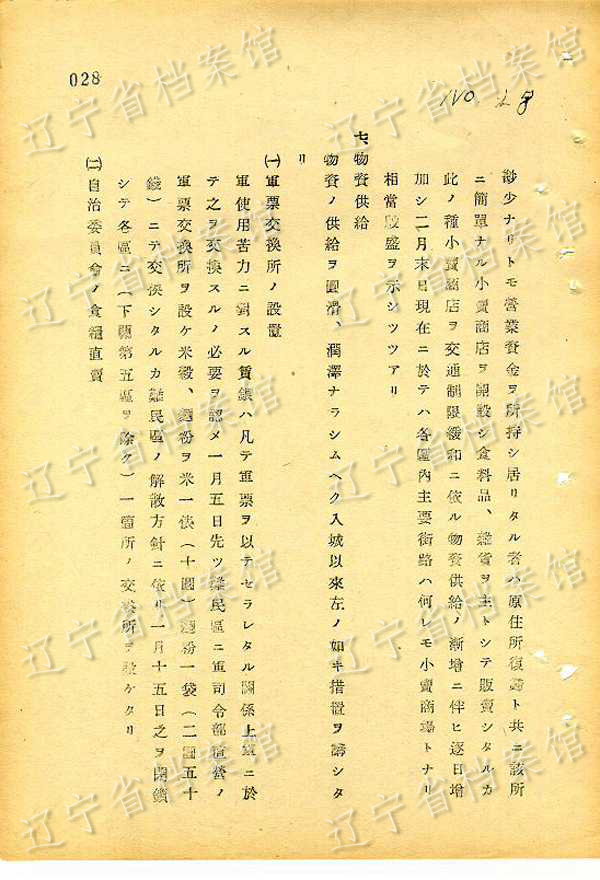 028
NO. 28
尠少ナリトモ營業資金ヲ所持シ居リタル者ハ原住所復歸ト共ニ該所
ニ簡單ナル小賣商店ヲ開設シ食料品、雜貨ヲ主トシテ販賣シタルカ
此ノ種小賣商店ヲ交通制限緩和ニ依ル物資供給ノ漸增ニ伴ヒ逐日增
加シ二月末日現在ニ於テハ各區內主要街路ハ何レモ小賣商場トナリ
相當殷盛ヲ示シツツアリ
七、物資供給
物資ノ供給ヲ圓滑、潤澤ナラシムヘク入城以來左ノ如キ措置ヲ講シタ
リ
(一)軍票交換所ノ設置
軍使用苦力ニ對スル賃銀ハ凡テ軍票ヲ以テセラレタル關係上軍ニ於
テ之ヲ交換スルノ必要ヲ認メ一月五日先ツ難民區ニ軍司令部直營ノ
軍票交換所ヲ設ケ米穀、麵粉ヲ米一俵(十圓)麵粉一袋(二圓五十
錢)ニテ交換シタルカ難民區ノ解散方針ニ依リ一月十五日之ヲ閉鎖
シテ各區ニ(下關第五區ヲ除ク)一箇所ノ交換所ヲ設ケタリ
(二)自治委員會ノ食糧直賣
辽宁省档案馆
辽宁省档案馆
辽宁省档案馆
辽宁省档案馆
辽宁省档案馆
辽宁省档案馆
辽宁省档案馆
辽宁省档案馆
辽宁省档案馆
辽宁省档案馆